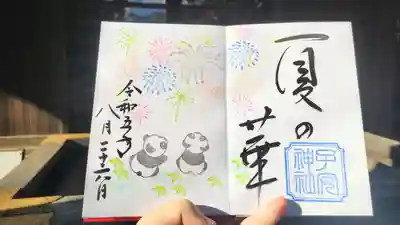 夏の華
神社
令和五年
八月二十六日